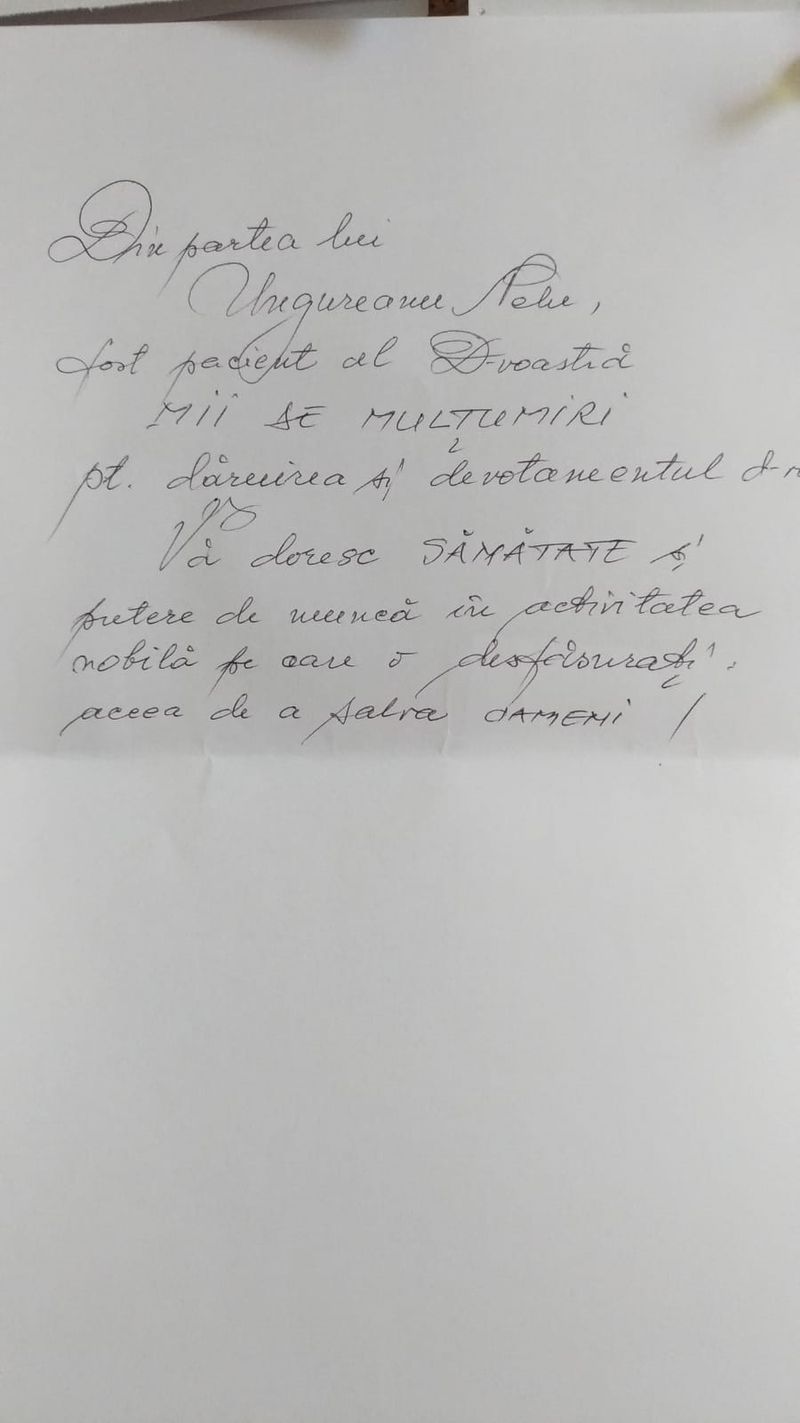 Din partea lui
Ungureanu Nelu,
fost pacient al D-voastră
MII DE MULȚUMIRI
pt. dăruirea și devotamentul
Vă doresc SĂNĂTATE și
putere de muncă în activitatea
nobilă pe care o desfășurați,
aceea de a salva OAMENI !